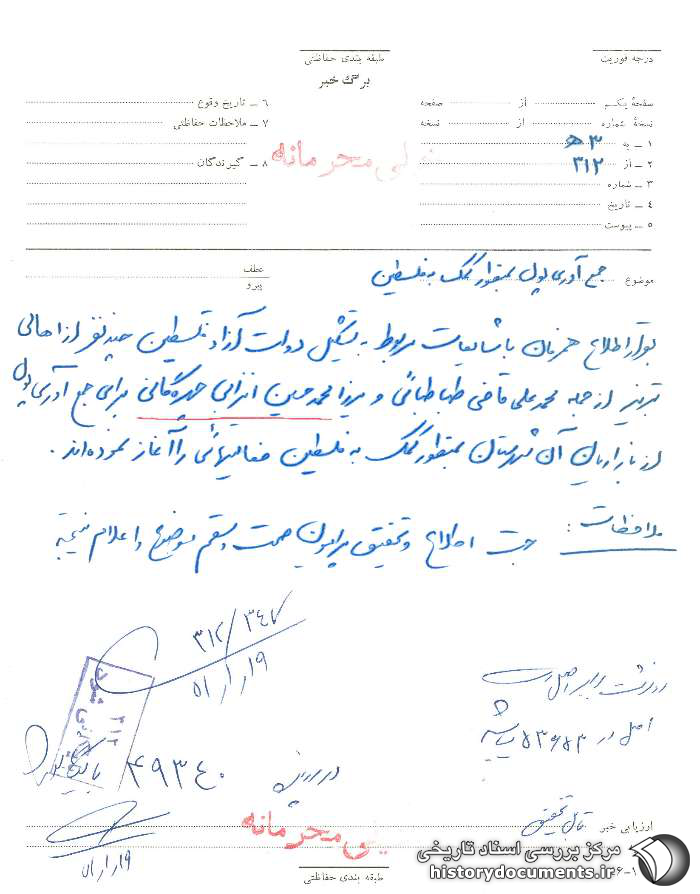 درجه فوریت
طبقه بندی حفاظتی
برگ خبر
صفحهٔ یکم از صفحه
نسخهٔ شماره از نسخه
۱ – به ۳ ه
۲ – از ۳۱۲
۳ – شماره
۴ – تاریخ
۵ – پیوست
۶ – تاریخ وقوع
۷ – ملاحظات حفاظتی
۸ – گیرندگان
محرمانه
موضوع جمع آوری پول بمنظور کمک به فلسطین
عطف
پیرو
اطلاع همزمان با شایعات مربوط به تشکیل دولت آزاد فلسطین چند نفر از اهالی
تبریز از جمله محمدعلی قاضی طباطبائی و میرزا محمدحسین انزابی چهرگانی برای جمع آوری پول
از بازاریان آن شهرستان بمنظور کمک به فلسطین فعالیتهائی را آغاز نموده‌اند.
ملاحظات: جهت اطلاع و تحقیق پیرامون صحت و سقم موضوع و اعلام نتیجه
۳۱۲/۳۴۷
۱۹/۱/۵۱
رونوشت برابر اصل است
اصل در ۵۳۶۸۳
در پرونده ۴۹۳۴۰ بایگانی
۱۹/۱/۵۱
ارزیابی خبر قابل تحقیق
محرمانه
طبقه بندی حفاظتی
۶–۱
مرکز بررسی اسناد تاریخی
historydocuments.ir